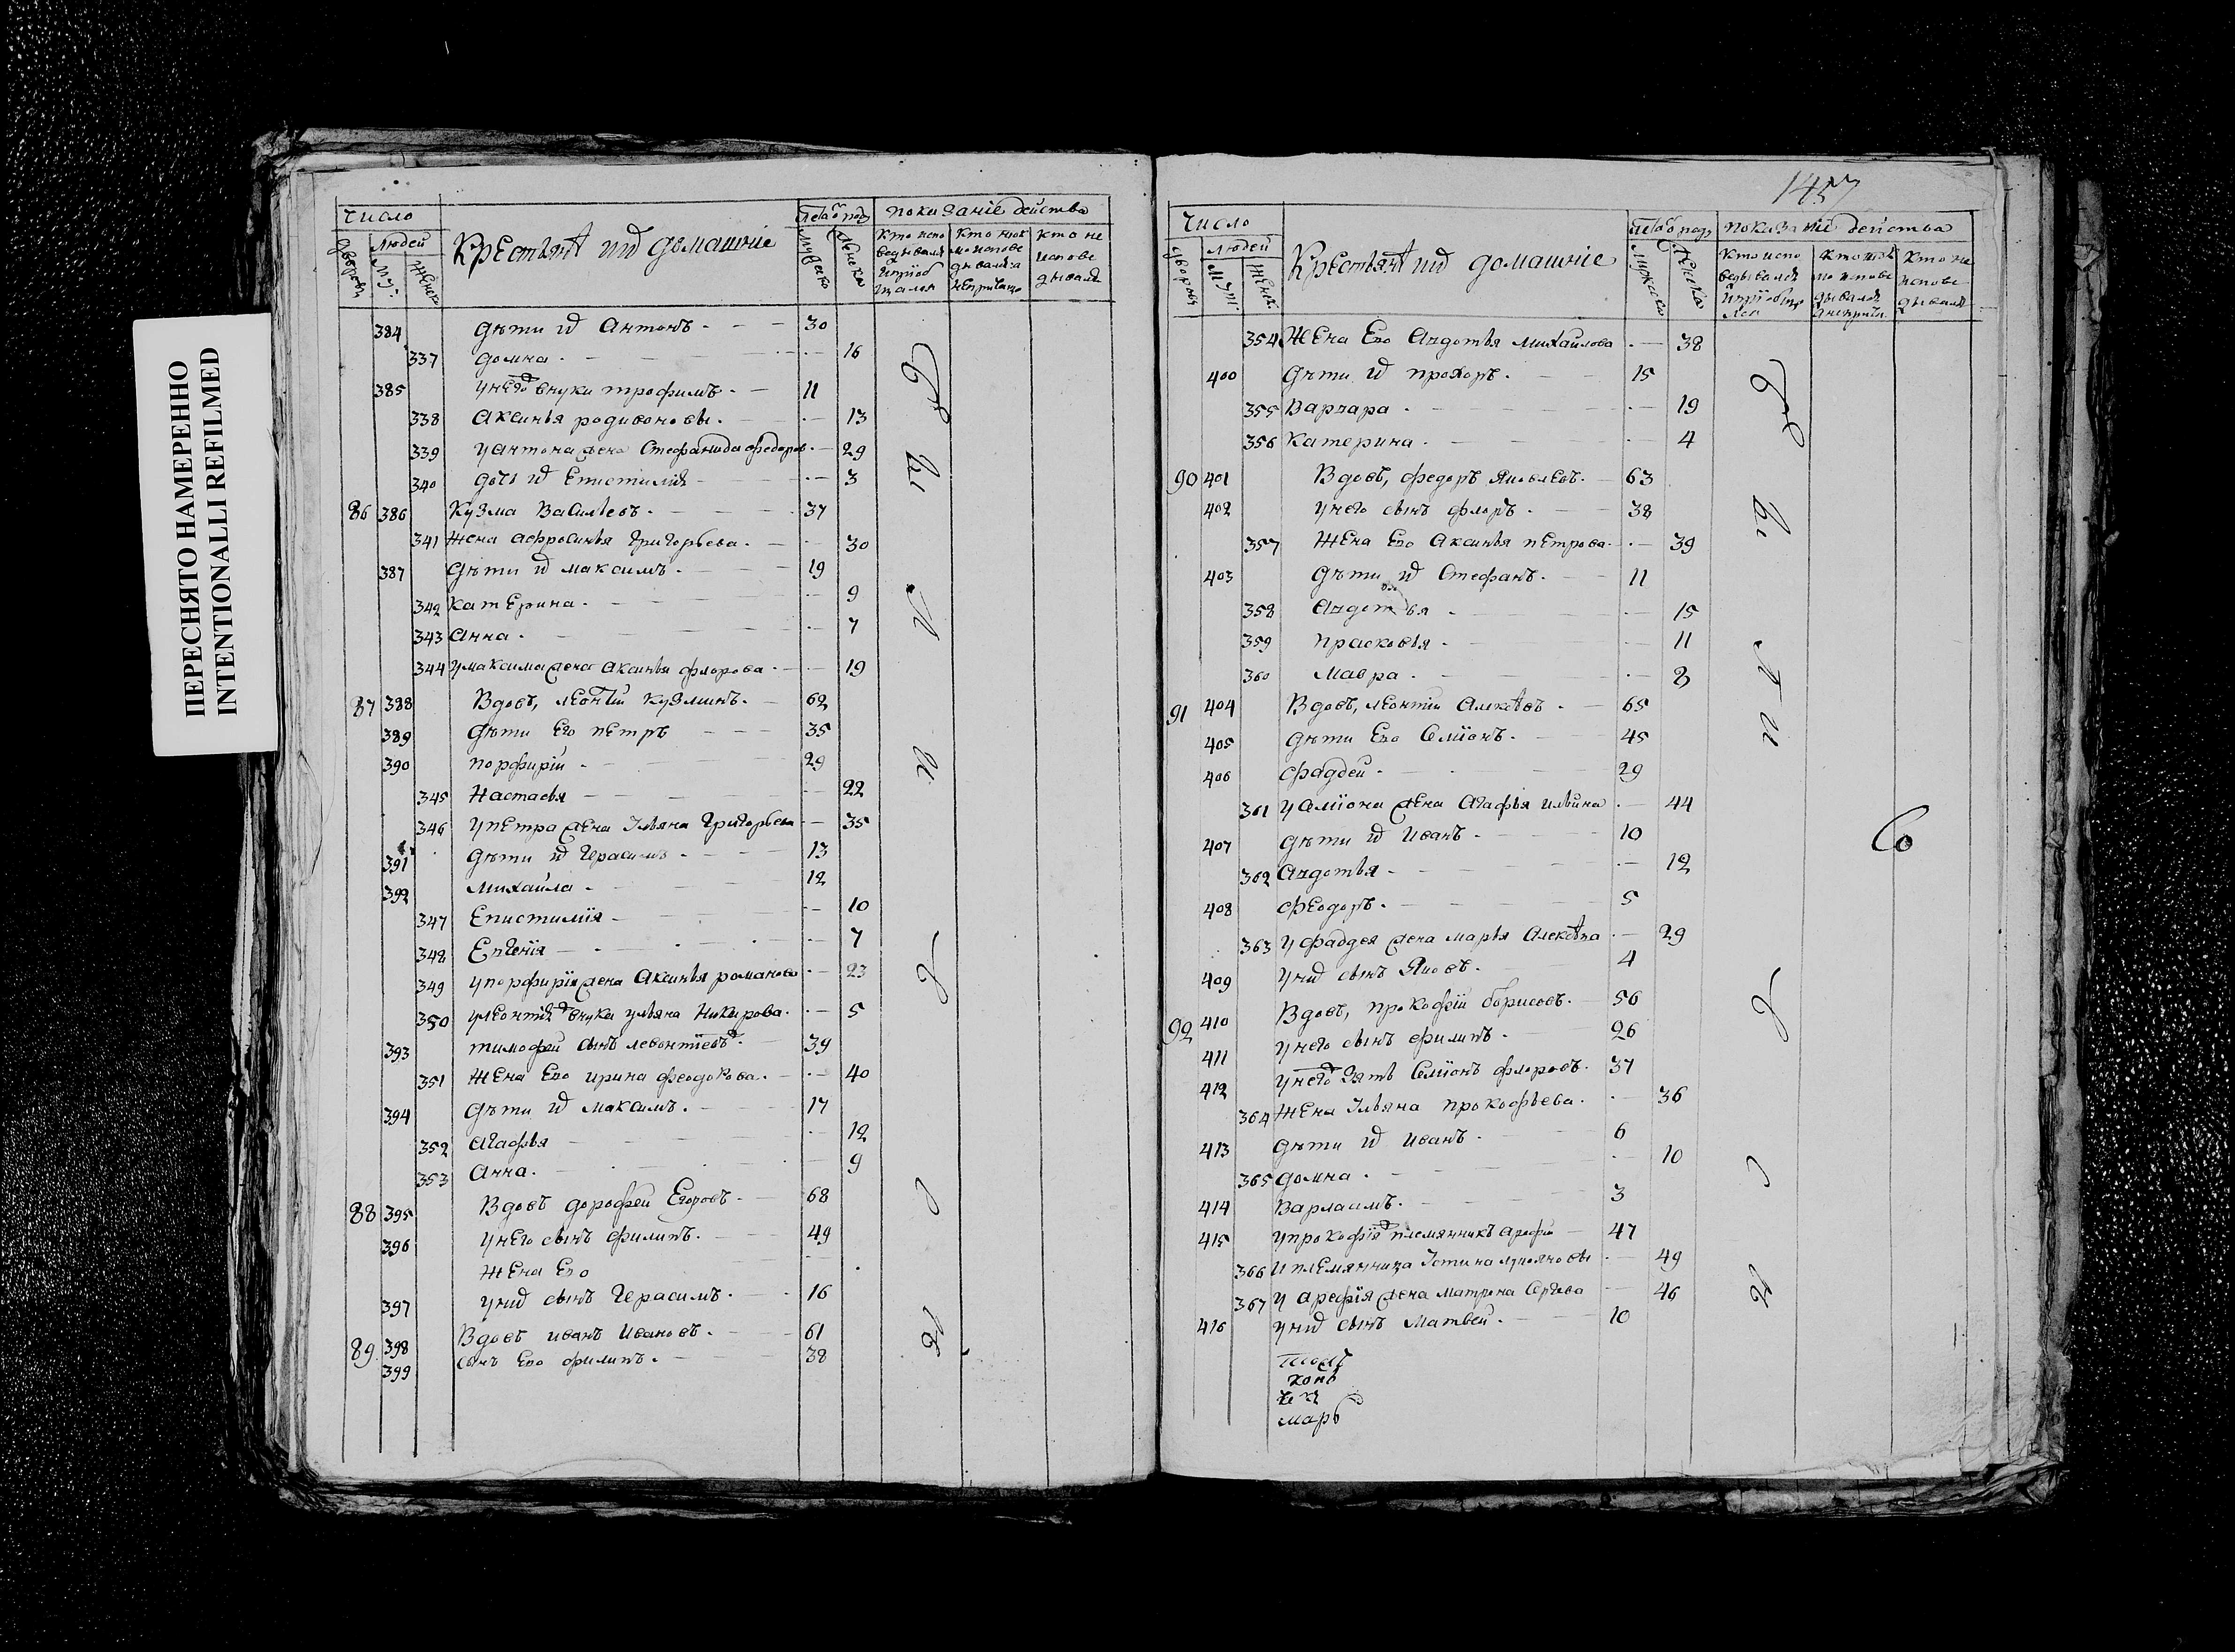 ПЕРЕСНЯТО НАМЕРЕННО
INTENTIONALLI REFILMED
Число
Людей
Крестьянѣ ихъ домашніе
показаніе действа
384 дѣти ихъ Антонъ 30
337 домна 16
385 унего внуки трофимъ 11
338 Аксинья родивоновы 13
339 уантона жена Стефанида федоров 29
340 дочь ихъ Епистимия 3
86 386 Кузма Васильевъ 37
341 жена Афросинья Григорьева 30
387 Дѣти ихъ максимъ 19
342 катерина 9
343 Анна 7
344 умаксима жена Аксинья флорова 19
87 388 Вдовъ, леонтїй Кузминъ 62
389 дѣти Его петръ 35
390 порфирїй 29
345 Настасья 22
346 упетра жена Ульяна Григорьева 35
391 дѣти ихъ Герасимъ 13
392 михайла 12
347 Епистимїя 10
348 Евгенїя 7
349 упорфирїя жена Аксинья романова 23
350 улеонтїя внука ульяна Никифорова 5
393 тимофей сынъ левонтїевъ 39
351 жена Его ирина феодорова 40
394 дѣти ихъ максимъ 17
352 агафья 12
353 Анна 9
88 395 Вдовъ дорофей Егоровъ 68
396 унего сынъ филипъ 49
жена Его
397 унихъ сынъ Герасимъ 16
89 398 Вдовъ иванъ Ивановъ 61
399 сынъ Его филипъ 38
1457
Число
Людей
Крестьянѣ ихъ домашніе
показаніе действа
354 жена Его Авдотья михайлова 38
400 дѣти ихъ прохоръ 15
355 Варвара 19
356 катерина 4
90 401 Вдовъ, федоръ Яковлевъ 63
402 унего сынъ флоръ 38
357 жена Его Аксинья петрова 39
403 дѣти ихъ Стефанъ 11
358 Авдотья 15
359 прасковья 11
360 мавра 8
91 404 Вдовъ, леонтїй Алексѣевъ 65
405 дѣти Его Семїонъ 45
406 фаддей 29
361 усемїона жена агафья ильина 44
407 дѣти ихъ иванъ 10
362 Авдотья 12
408 феодоръ 5
363 уфаддея жена марья Алексѣева 29
409 унихъ сынъ Яковъ 4
92 410 Вдовъ, прокофїй борисовъ 56
411 унего сынъ филипъ 26
412 унего зять Семїонъ флоровъ 37
364 жена Ульяна прокофьева 36
413 дѣти ихъ иванъ 6
365 домна 10
414 Варлаамъ 3
415 упрокофїя племянникъ арефїй 47
366 и племянница Устина лукояновы 49
367 у арефїя жена матрена Сергѣева 46
416 унихъ сынъ матвей 10
марь